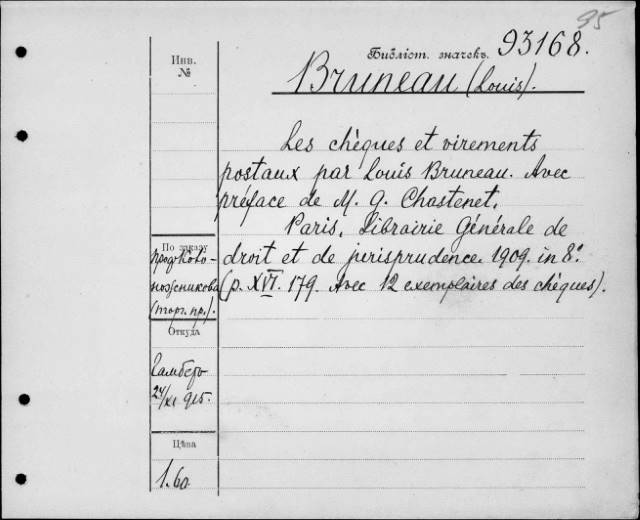 95
Инв.
№
Библіот. значекъ. 93168.
Bruneau (Louis).
Les chèques et virements
postaux par Louis Bruneau. Avec
préface de M. G. Chastenet.
Paris, Librairie Générale de
droit et de jurisprudence. 1909. in 8º
(p. XVI. 179. Avec 12 exemplaires des chèques).
По заказу
проф. Ново-
(торг. пр.).
Откуда
Гамберъ
24/XI 915.
Цѣна
1.60